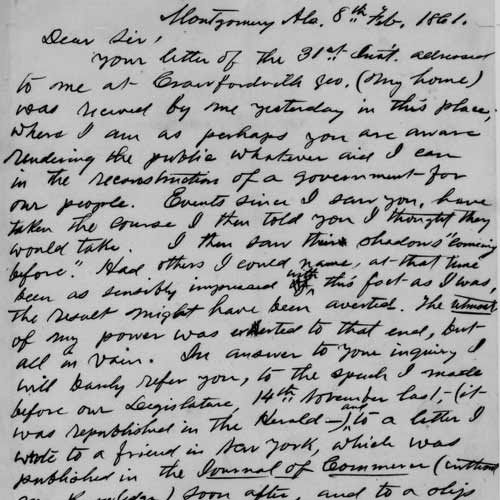 Montgomery Ala. 8th Feb. 1861.
Dear Sir,
Your letter of the 31st Inst. adressed
to me at Crawfordville Geo. (my home)
was recived by me yesterday in this place,
where I am as perhaps you are aware
rendering the public whatever aid I can
in the reconstruction of a government for
our people. Events since I saw you, have
taken the course I then told you I thought they
would take. I then saw their shadows "coming
before". Had others I could name, at that time
been as sensibly impressed with this fact as I was,
the result might have been averted. The utmost
of my power was exerted to that end, but
all in vain. In answer to your inquiry I
will barely refer you, to the speech I made
before our Legislature 14th November last,- (it
was republished in the Herald-) and to a letter I
wrote to a friend in New York, which was
published in the Journal of Commerce (without
my knowledge) soon after, and to a